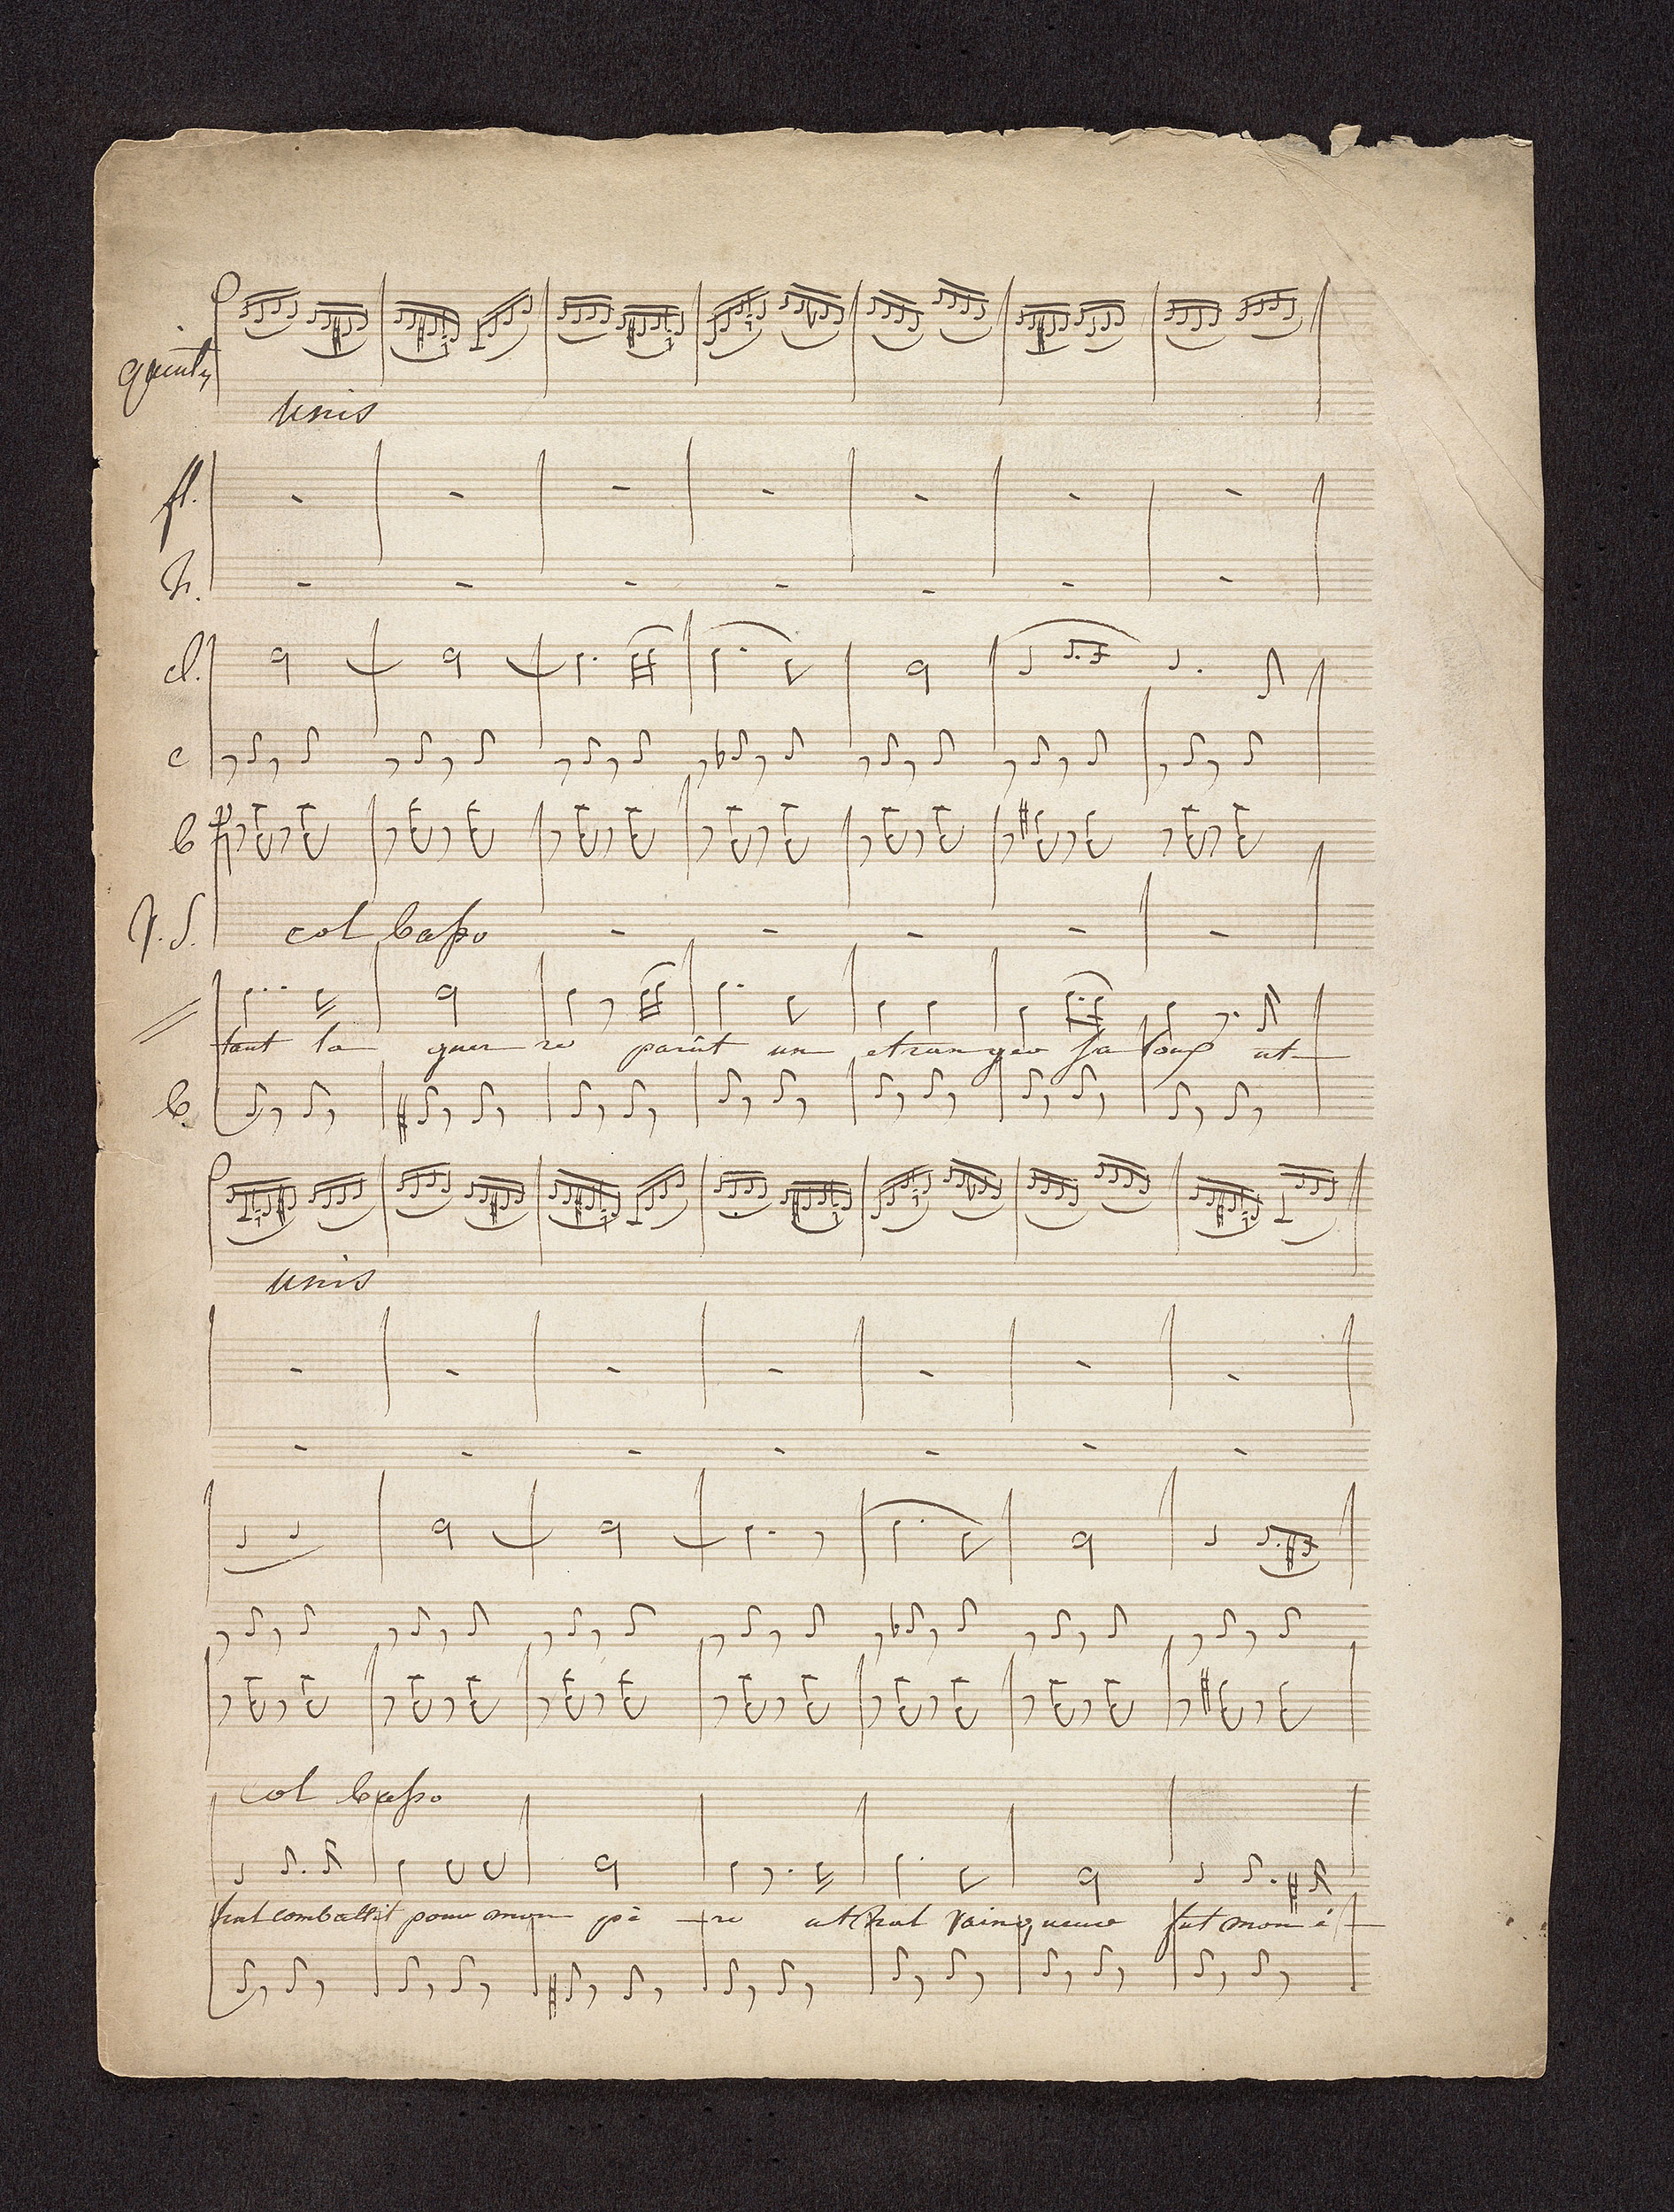 quint
unis
fl.
h.
cl.
c
b
col basso
tant la guer re parût un etranger sa
b.
unis
col basso
combattit pour mon pè re vainqueur fut mon é